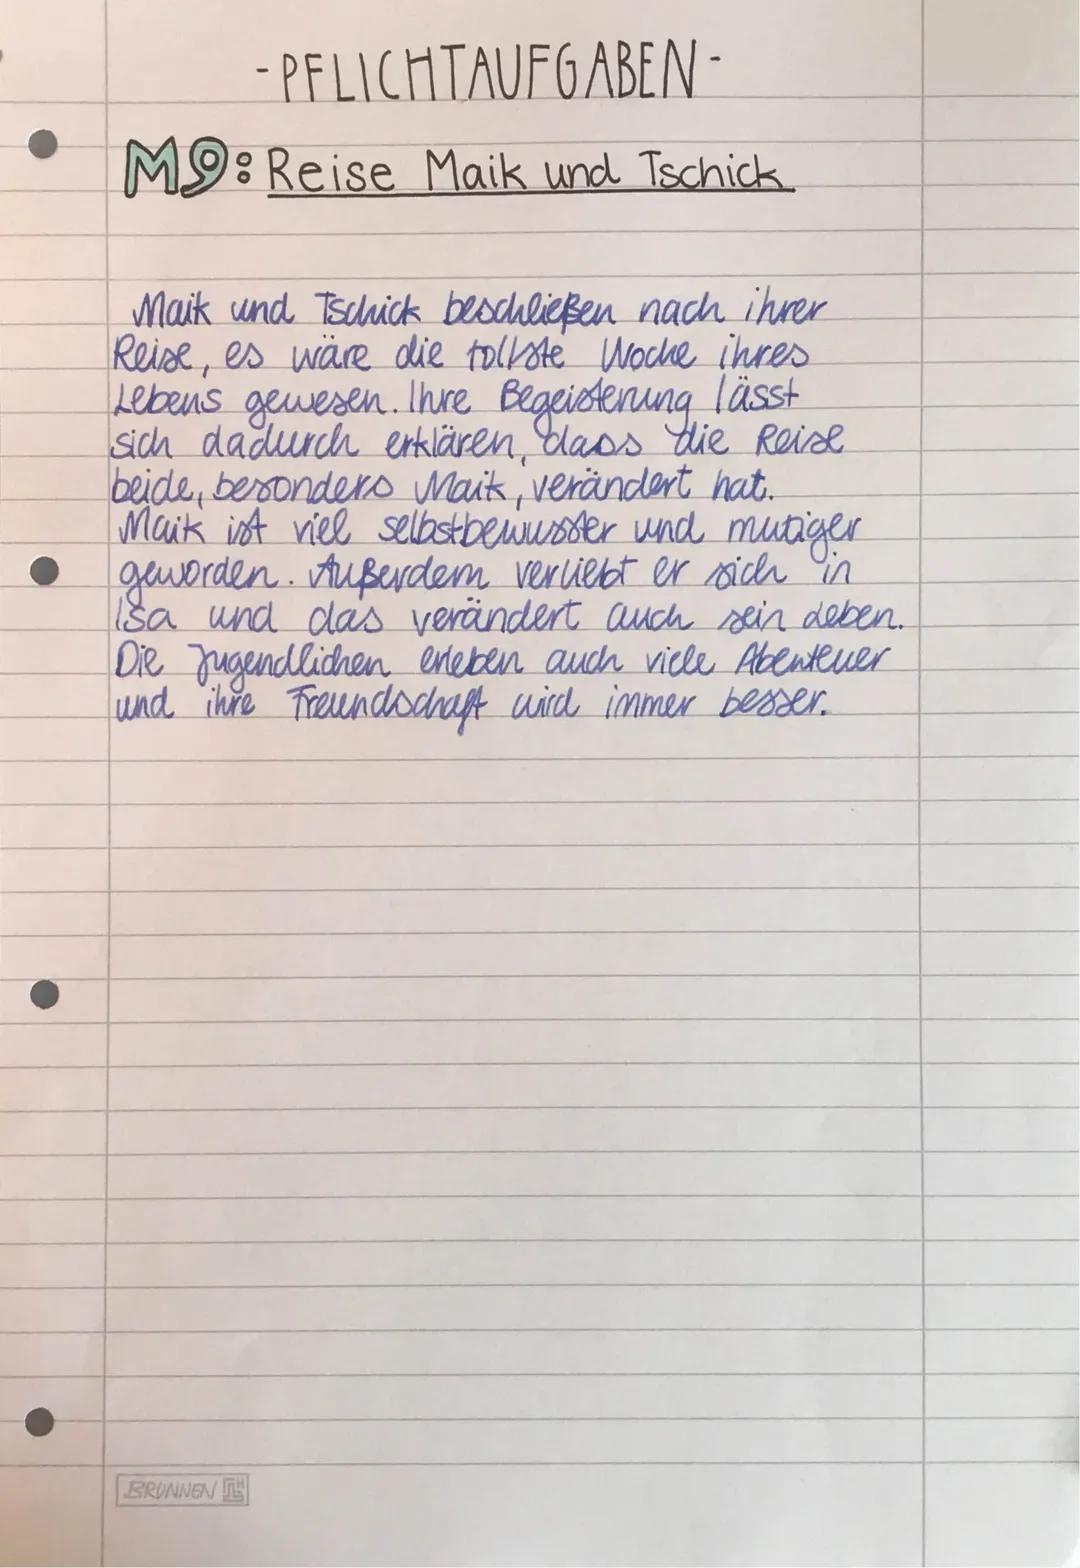 -PFLICHTAUFGABEN-
M9: Reise Maik und Tschick
Maik und Tschick beschließen nach ihrer
Reise, es wäre die tollste Woche ihres
Lebens gewesen. Ihre Begeisterung lässt
sich dadurch erklären, dass die Reise
beide, besonders Maik, verändert hat.
Maik ist viel selbstbewusster und mutiger
geworden. Außerdem verliebt er sich in
Isa und das verändert auch sein Leben.
Die Jugendlichen erleben auch viele Abenteuer
und ihre Freundschaft wird immer besser.
BRUNNEN